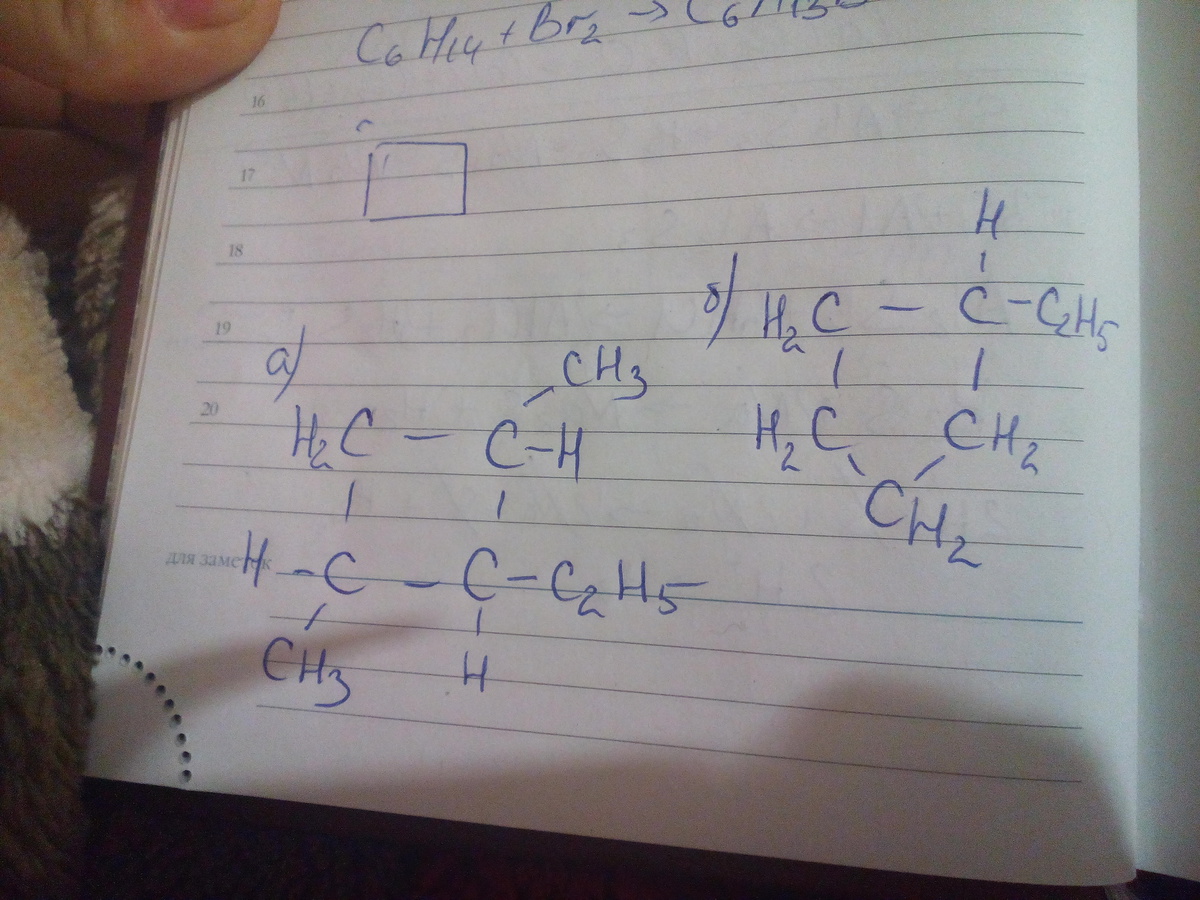 C₆H₁₄ + Br₂ → C₆H₁₃
16
17
18
19
20
для заметок
а)
CH₃
H₂C — C–H
H – C – C – C₂H₅–
CH₃ H
б)
H
H₂C — C – C₂H₅
H₂C CH₂
CH₂